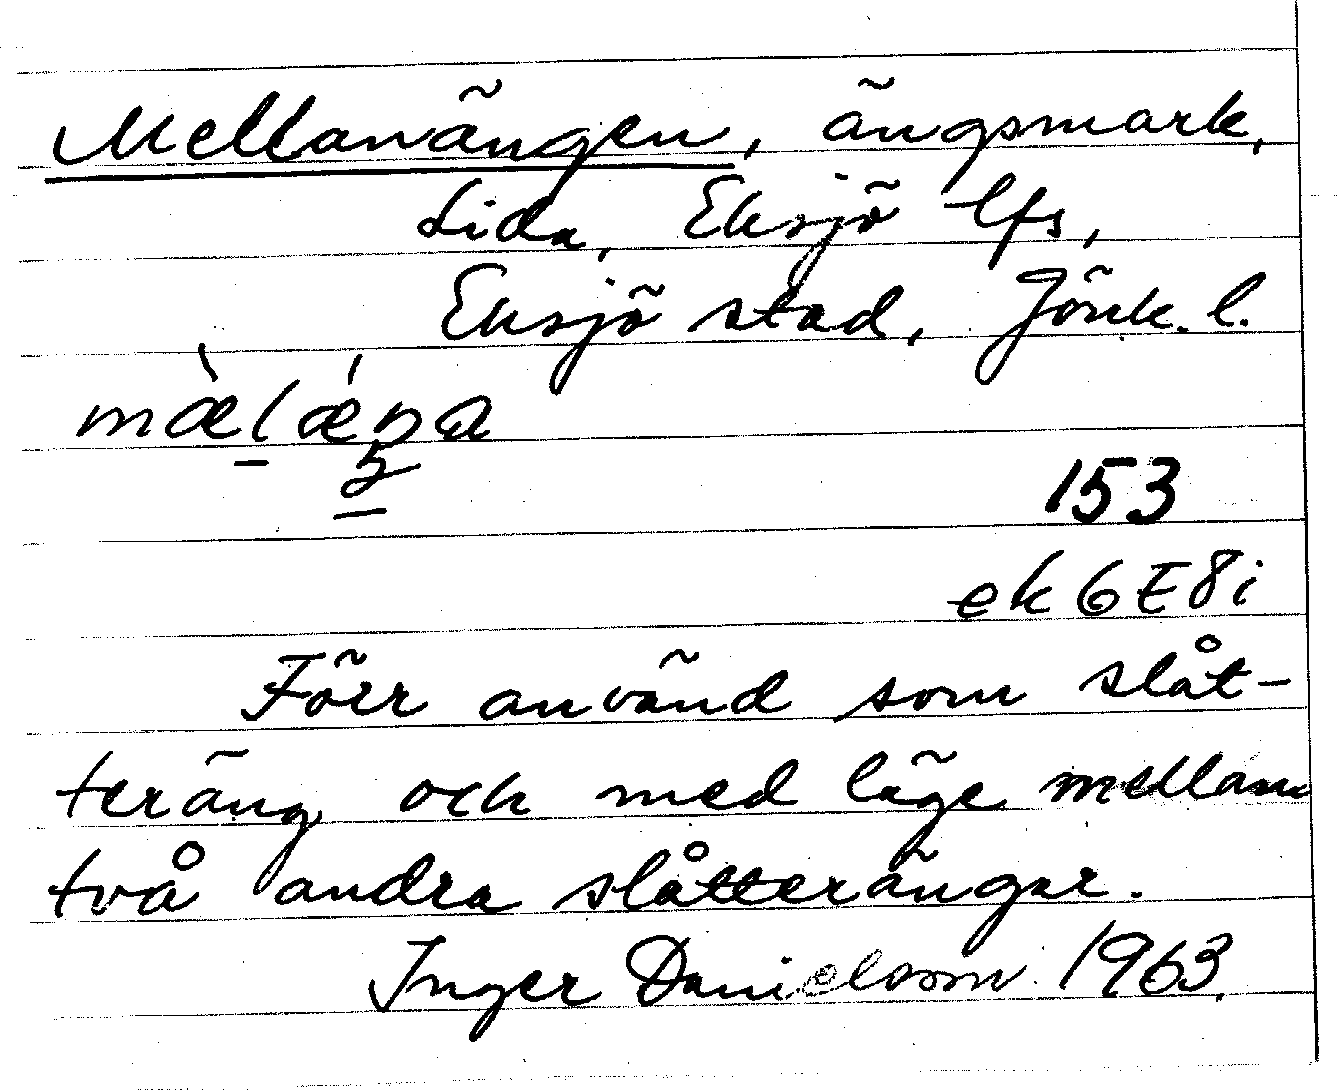 Mellanängen, ängsmark,
Lida, Eksjö lfs,
Eksjö stad, Jönk. l.
153
ek 6E8i
Förr använd som slåt-
teräng och med läge mellan
två andra slåtterängar.
Inger Danielsson 1963.